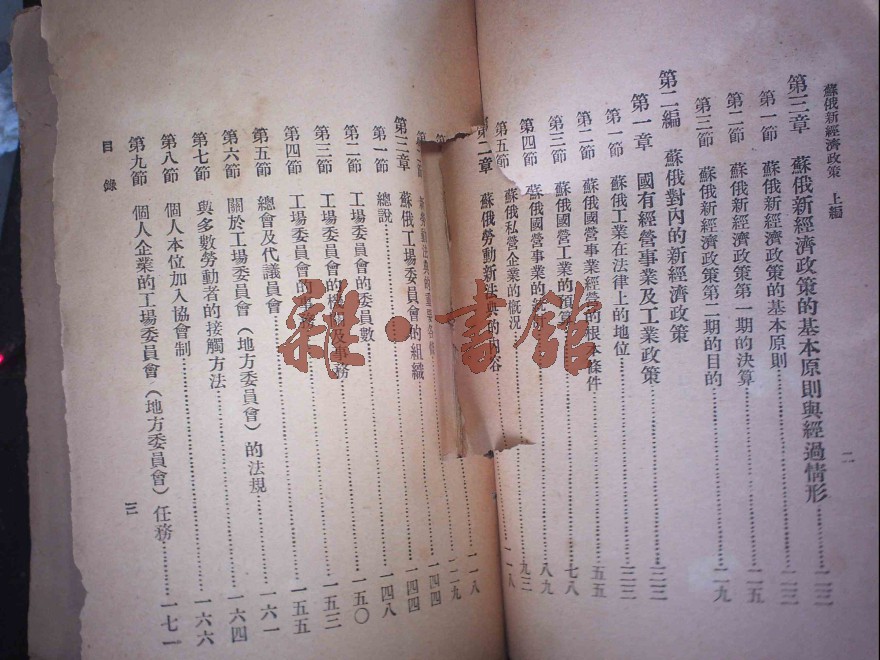 蘇俄新經濟政策 上編
二
第三章 蘇俄新經濟政策的基本原則與經過情形 二三
第一節 蘇俄新經濟政策的基本原則 二三
第二節 蘇俄新經濟政策第一期的決算 二五
第三節 蘇俄新經濟政策第二期的目的 二九
第二編 蘇俄對內的新經濟政策
第一章 國有經營事業及工業政策 三三
第一節 蘇俄工業在法律上的地位 三三
第二節 蘇俄國營事業經營的根本條件 五五
第三節 蘇俄國營工業的預算 七八
第四節 蘇俄國營事業的 八九
第五節 蘇俄私營企業的概況 九三
第二章 蘇俄勞動新法典的內容
蘇俄工場委員會的組織 一四四
第三章
第一節 總說 一四四
第二節 工場委員會的委員數 一四八
第三節 工場委員會的機關及事務 一五〇
第四節 工場委員會的 一五三
第五節 總會及代議員會 一五五
第六節 關於工場委員會(地方委員會)的法規 一六一
第七節 與多數勞動者的接觸方法 一六四
第八節 個人本位加入協會制 一六六
第九節 個人企業的工場委員會(地方委員會)任務 一七一
目錄
三
雜·書館